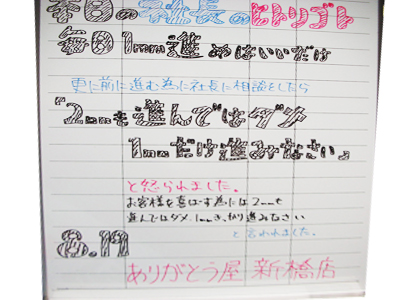 本日の社長のヒトリゴト
毎日1mm進めばいいだけ
更に前に進む為に社長に相談をしたら
「2mmも進んではダメ
1mmだけ進みなさい」
と怒られました。
お客様を喜ばす為には2mmも
進んではダメ。1mmきっかり進みなさい
と言われました。
8.19
ありがとう屋 新橋店